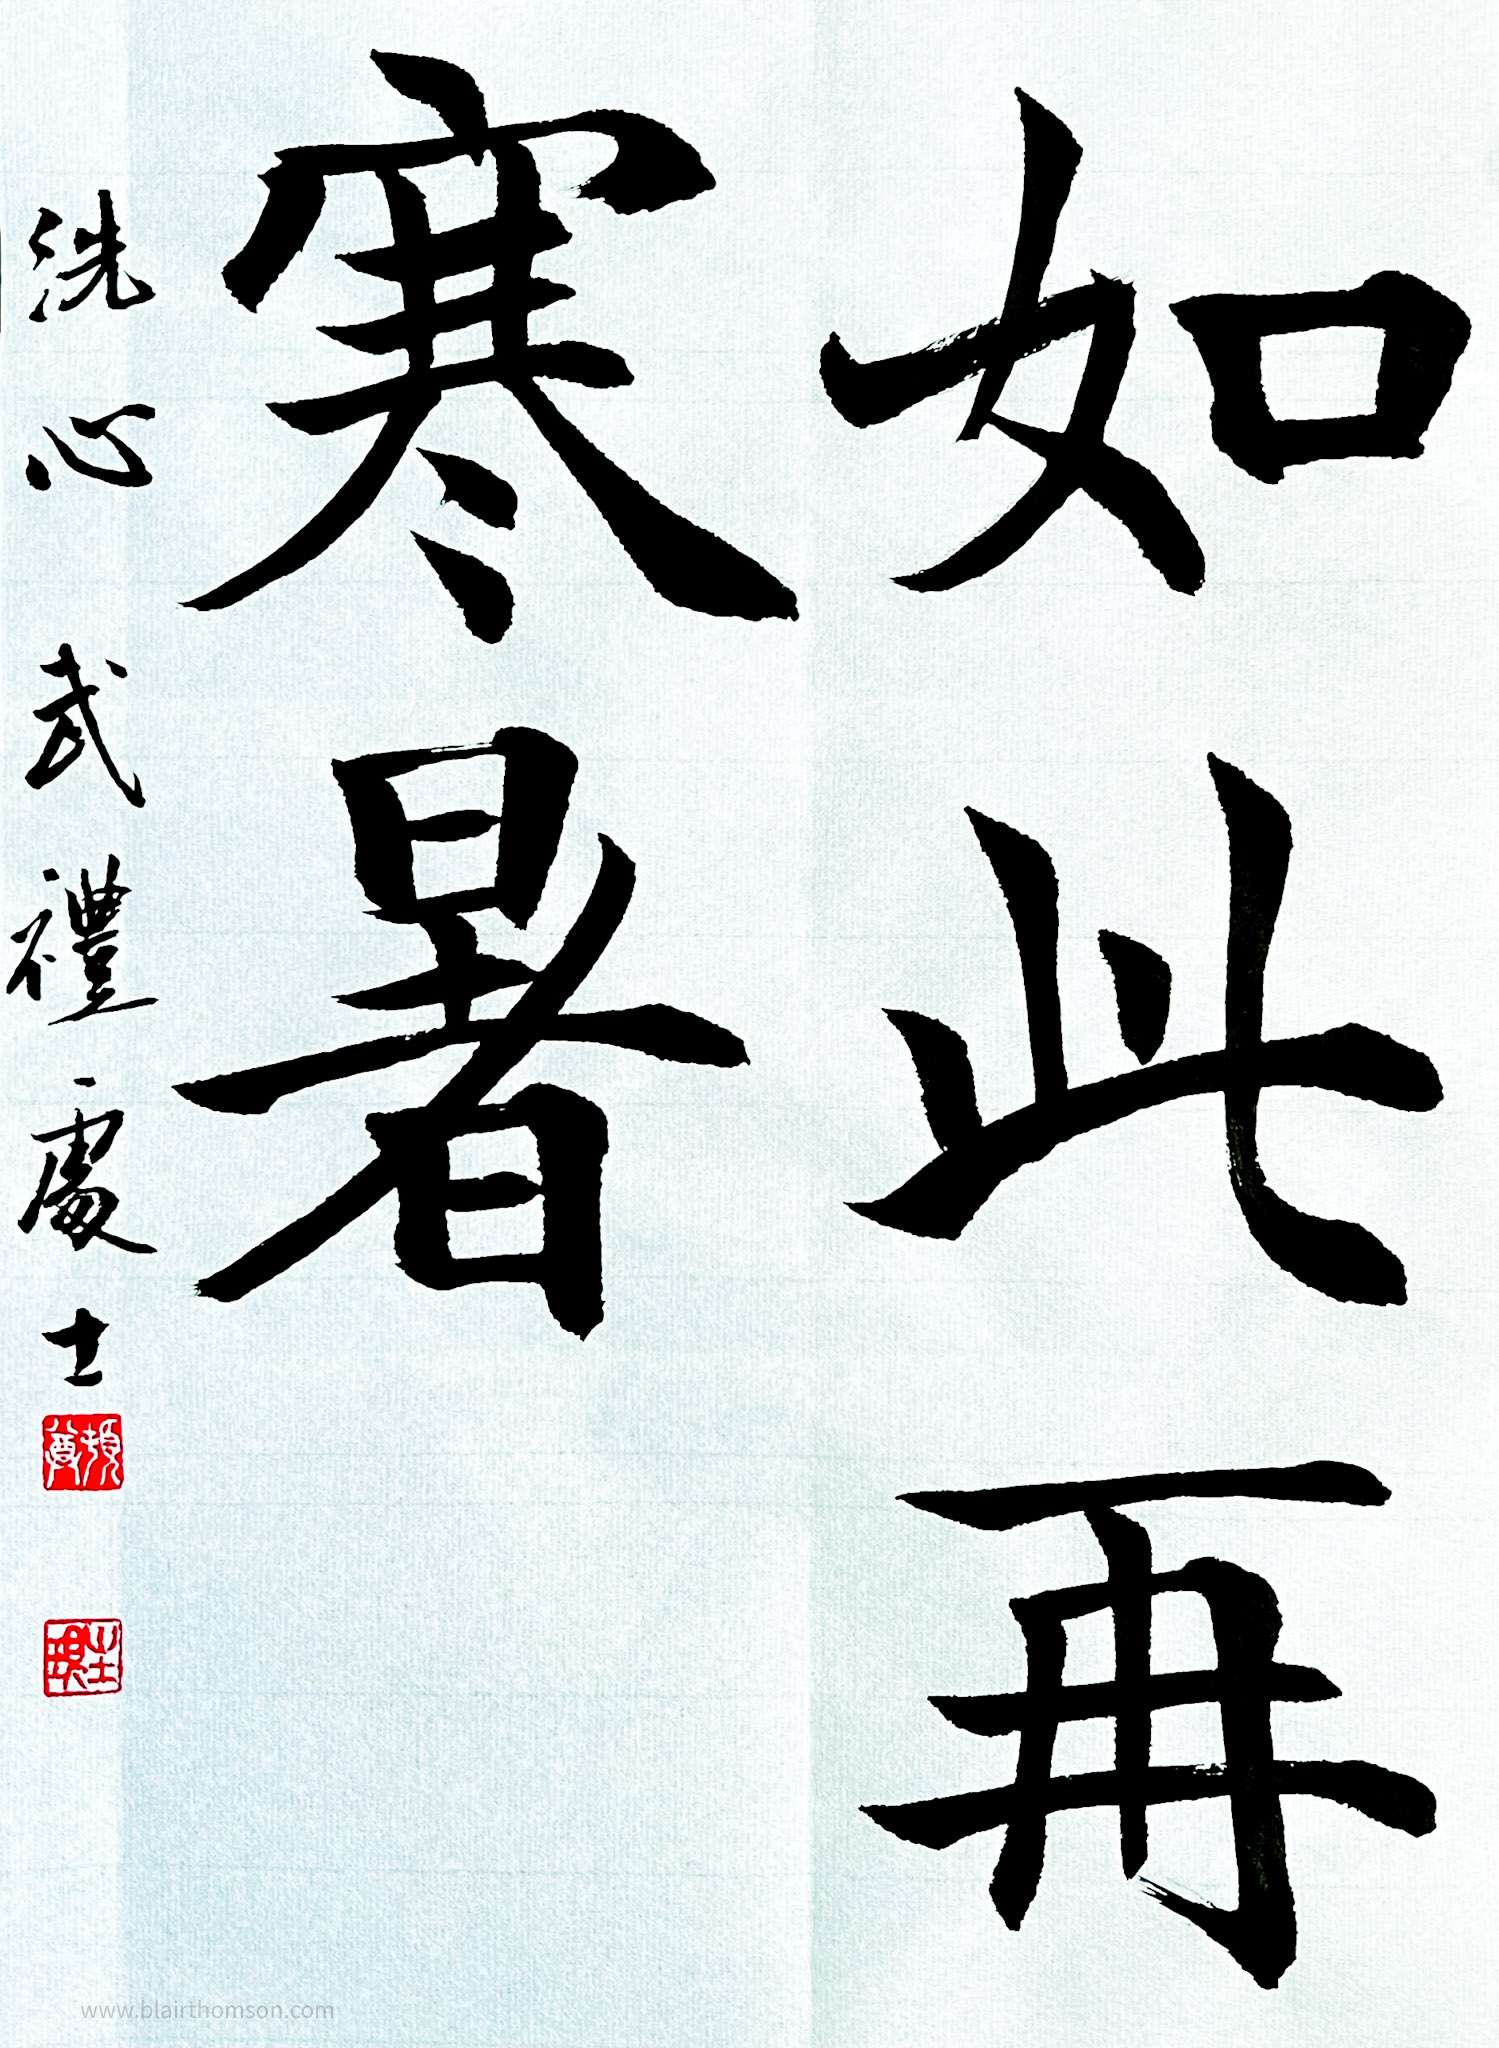 如此再
寒暑
洗心武禮處士
www.blairthomson.com